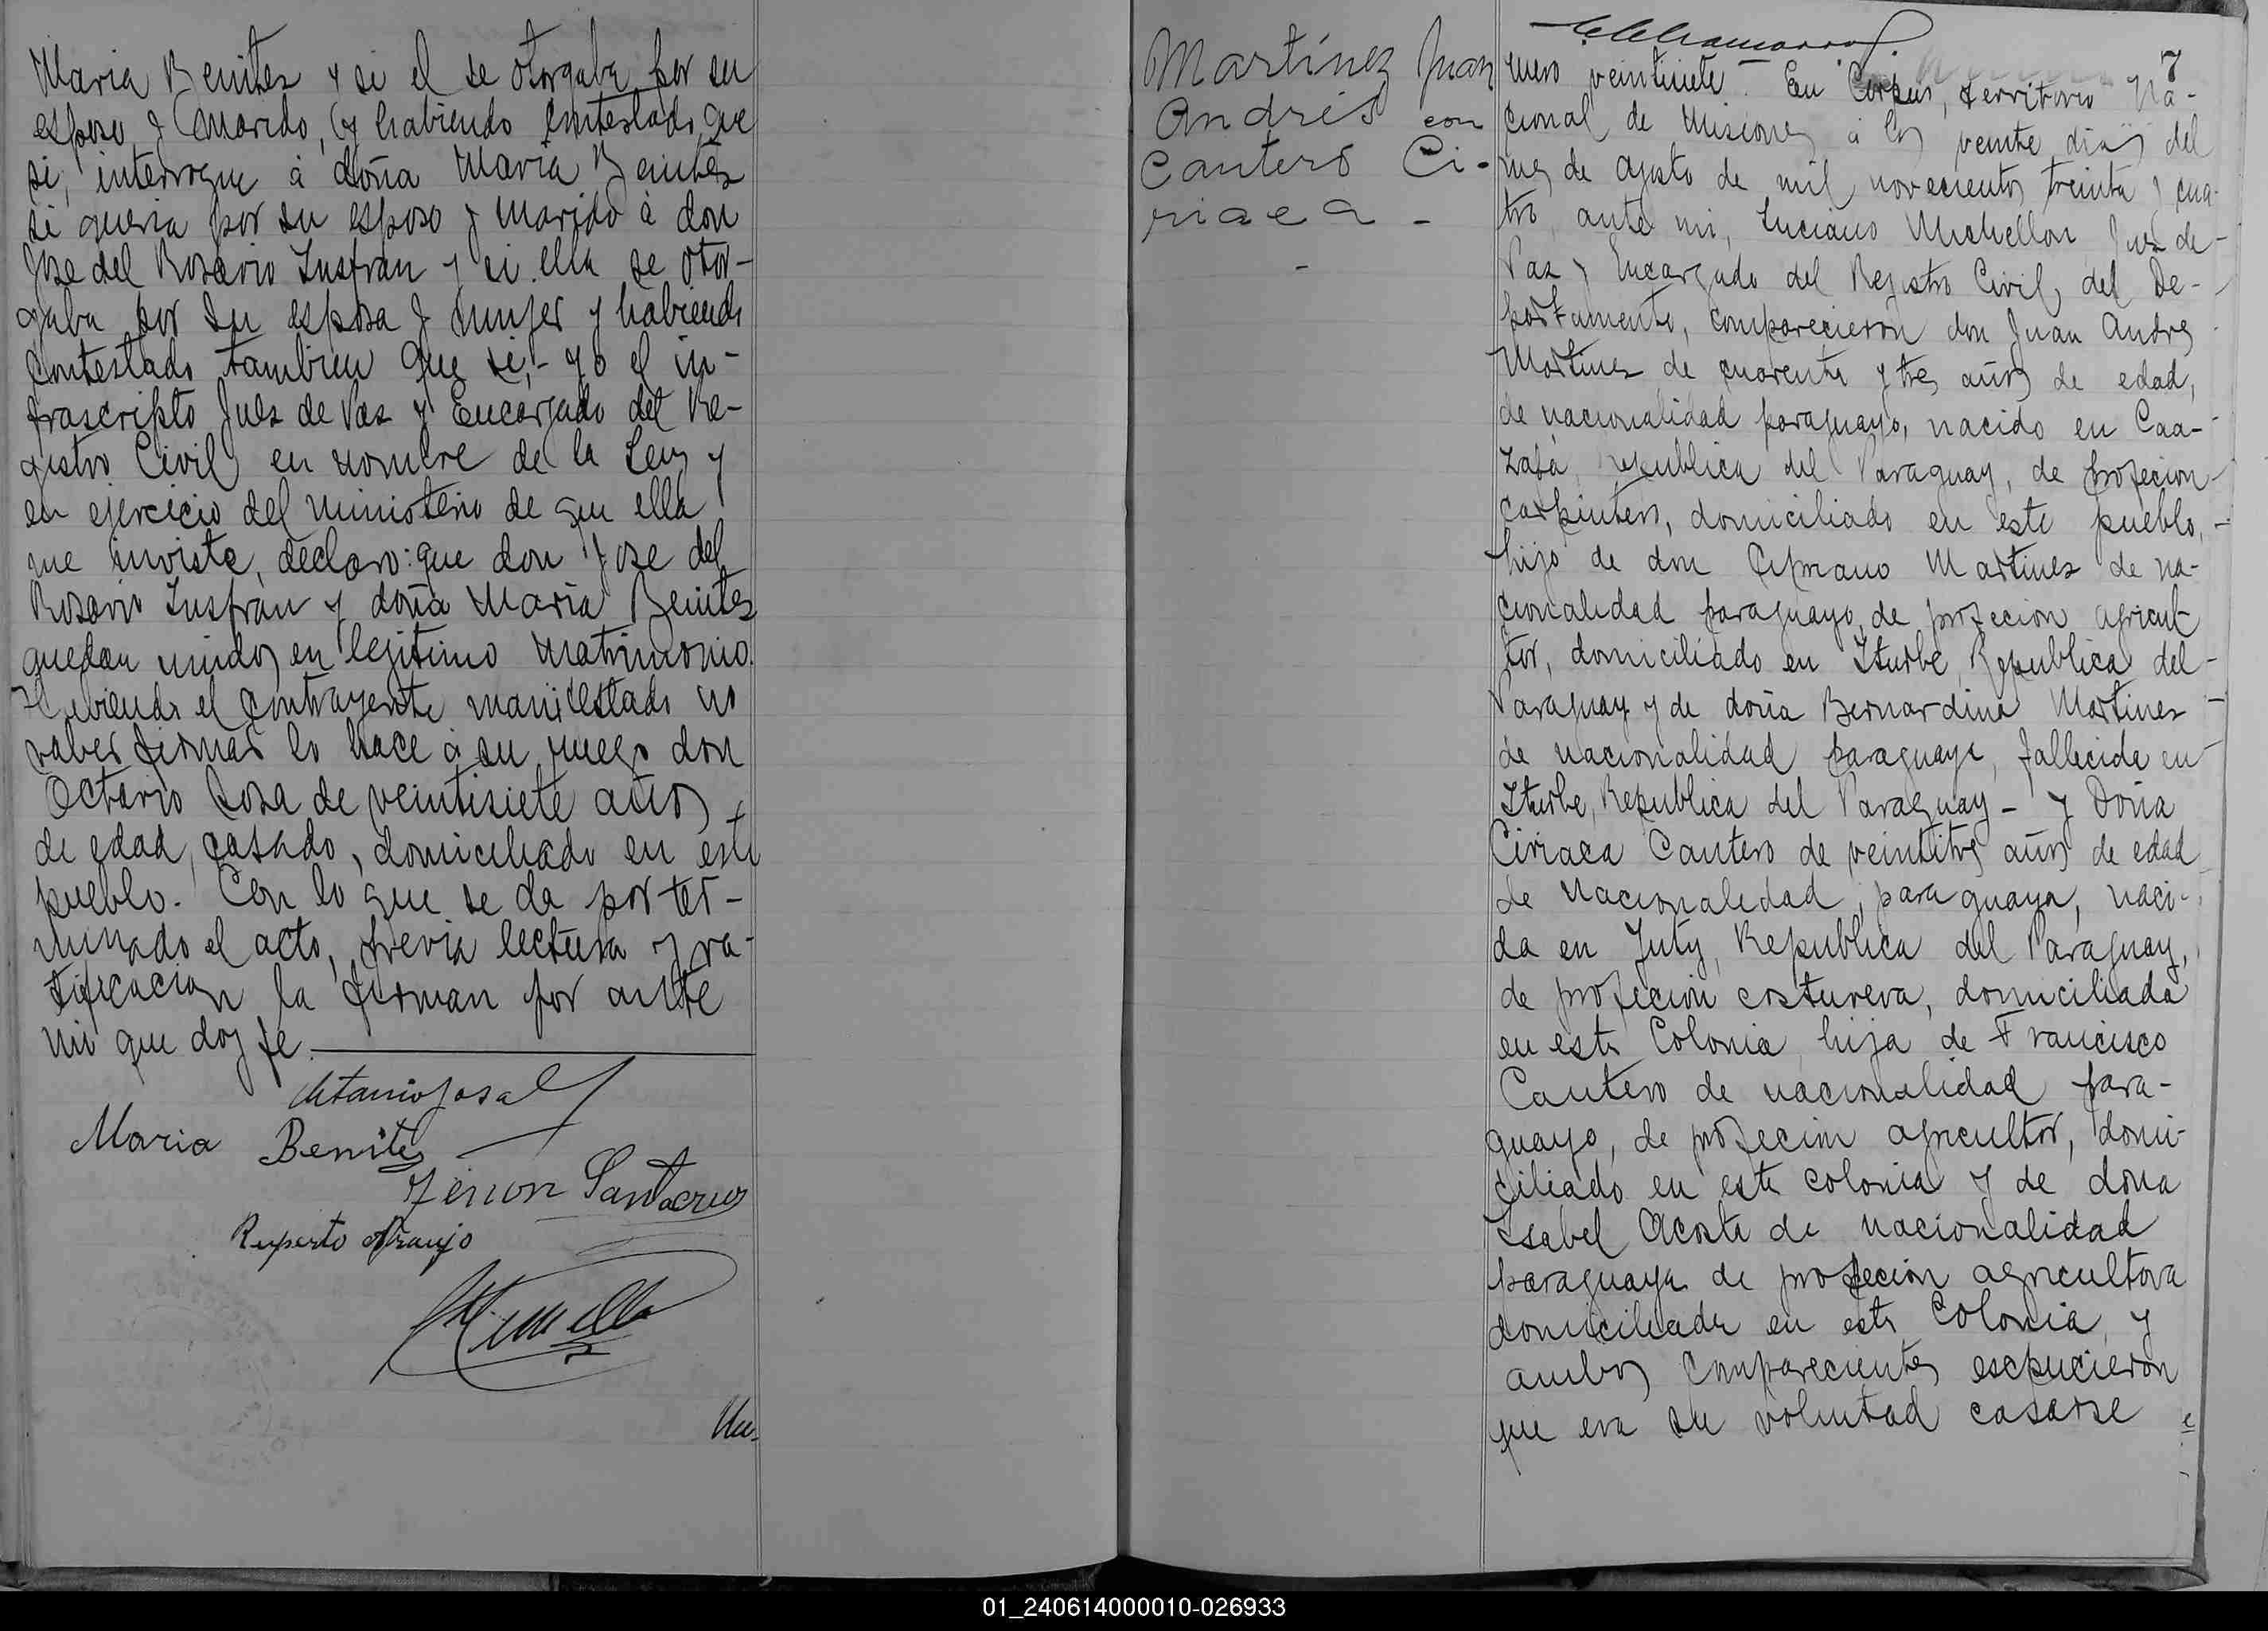 Maria Benitez y si el se otorgaba por su
esposo y marido, y habiendo contestado que
si, interrogue á doña Maria Benitez
si queria por su esposo y marido á don
Jose del Rosario Insfran y si ella se otor-
gaba por su esposa y mujer y habiendo
contestado tambien que si,- yo el in-
frascripto Juez de Paz y Encargado del Re-
gistro Civil, en nombre de la Ley y
en ejercicio del ministerio de que ella
me inviste, declaro: que don Jose del
Rosario Insfran y doña Maria Benitez
quedan unidos en legitimo matrimonio.
Habiendo el contrayente manifestado no
saber firmar lo hace á su ruego don
Octavio Sosa de veintisiete años
de edad, casado, domiciliado en este
pueblo. Con lo que se da por ter-
minado el acto, previa lectura y ra-
tificacion la firman por ante
mi que doy fe.
Octavio Sosa
Maria Benites
Zenon Santacruz
Ruperto Araujo
Nu-
Martínez Juan
Andrés con
Cantero Ci-
riaca -
7
mero veintisiete - En Corpus, territorio Na-
cional de Misiones á los veinte dias del
mes de agosto de mil novecientos treinta y cua-
tro, ante mi, Luciano Michellon Juez de
Paz y Encargado del Registro Civil, del De-
partamento, comparecieron don Juan Andres
Martinez de cuarenta y tres años de edad,
de nacionalidad paraguayo, nacido en Caa-
zapá, Republica del Paraguay, de profecion
carpintero, domiciliado en este pueblo,
hijo de don Cipriano Martinez de na-
cionalidad paraguayo, de profecion agricul-
tor, domiciliado en Iturbe, Republica del
Paraguay y de doña Bernardina Martinez
de nacionalidad paraguaya, fallecida en
Iturbe, Republica del Paraguay - y Doña
Ciriaca Cantero de veintitres años de edad
de nacionalidad, paraguaya, naci-
da en Juty, Republica del Paraguay,
de profecion costurera, domiciliada
en esta Colonia, hija de Francisco
Cantero de nacionalidad para-
guayo, de profecion agricultor, domi-
ciliado en esta colonia y de dona
Isabel Acosta de nacionalidad
paraguaya de profecion agricultora
domiciliada en esta Colonia, y
ambos comparecientes escpucieron
que era su voluntad casarse
01_240614000010-026933